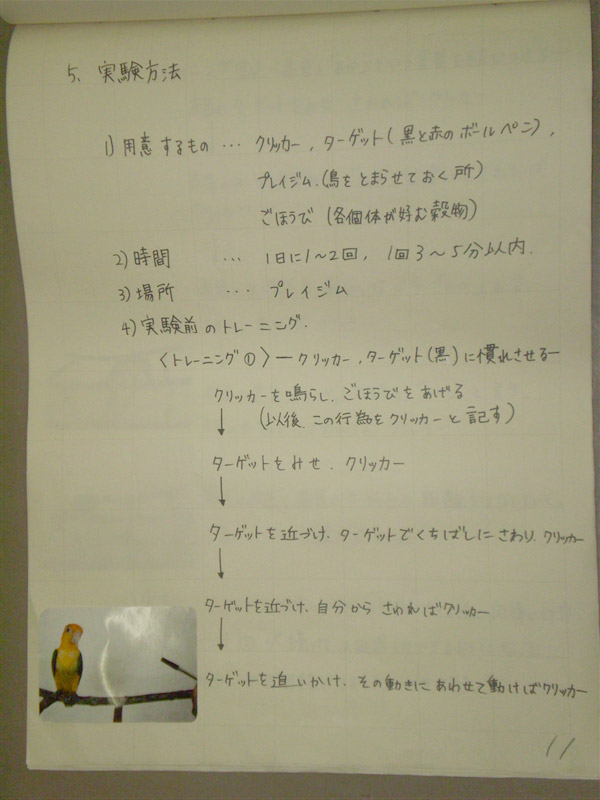 5、実験方法
1)用意するもの … クリッカー，ターゲット(黒と赤のボールペン)，
プレイジム．(鳥をとまらせておく所)
ごほうび (各個体が好む穀物)
2)時間 … 1日に1〜2回，1回3〜5分以内．
3)場所 … プレイジム
4)実験前のトレーニング．
〈トレーニング①〉ークリッカー，ターゲット(黒)に慣れさせるー
クリッカーを鳴らし、ごほうびをあげる
(以後、この行為をクリッカーと記す)
↓
ターゲットをみせ、クリッカー
↓
ターゲットを近づけ、ターゲットでくちばしにさわり、クリッカー
↓
ターゲットを近づけ、自分からさわればクリッカー
↓
ターゲットを追いかけ、その動きにあわせて動けばクリッカー
11